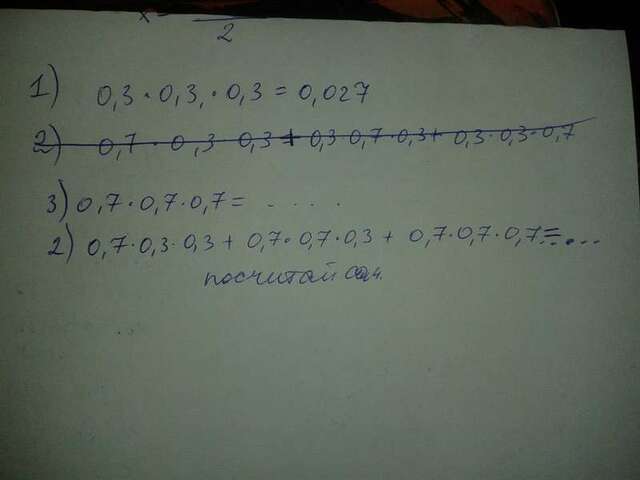 x-
2
1) 0,3 · 0,3, · 0,3 = 0,027
2) 0,7 · 0,3 0,3 + 0,3 0,7 · 0,3 + 0,3 · 0,3 · 0,7
3) 0,7 · 0,7 · 0,7 = . . . .
2) 0,7 · 0,3 · 0,3 + 0,7 · 0,7 · 0,3 + 0,7 · 0,7 · 0,7 = ....
посчитай сам.